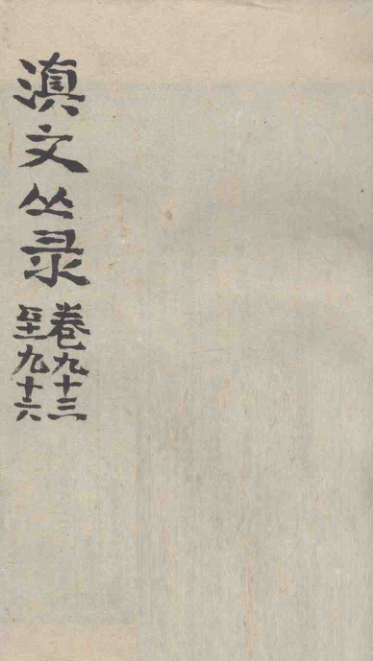 滇文丛录
卷九十三
至九十六